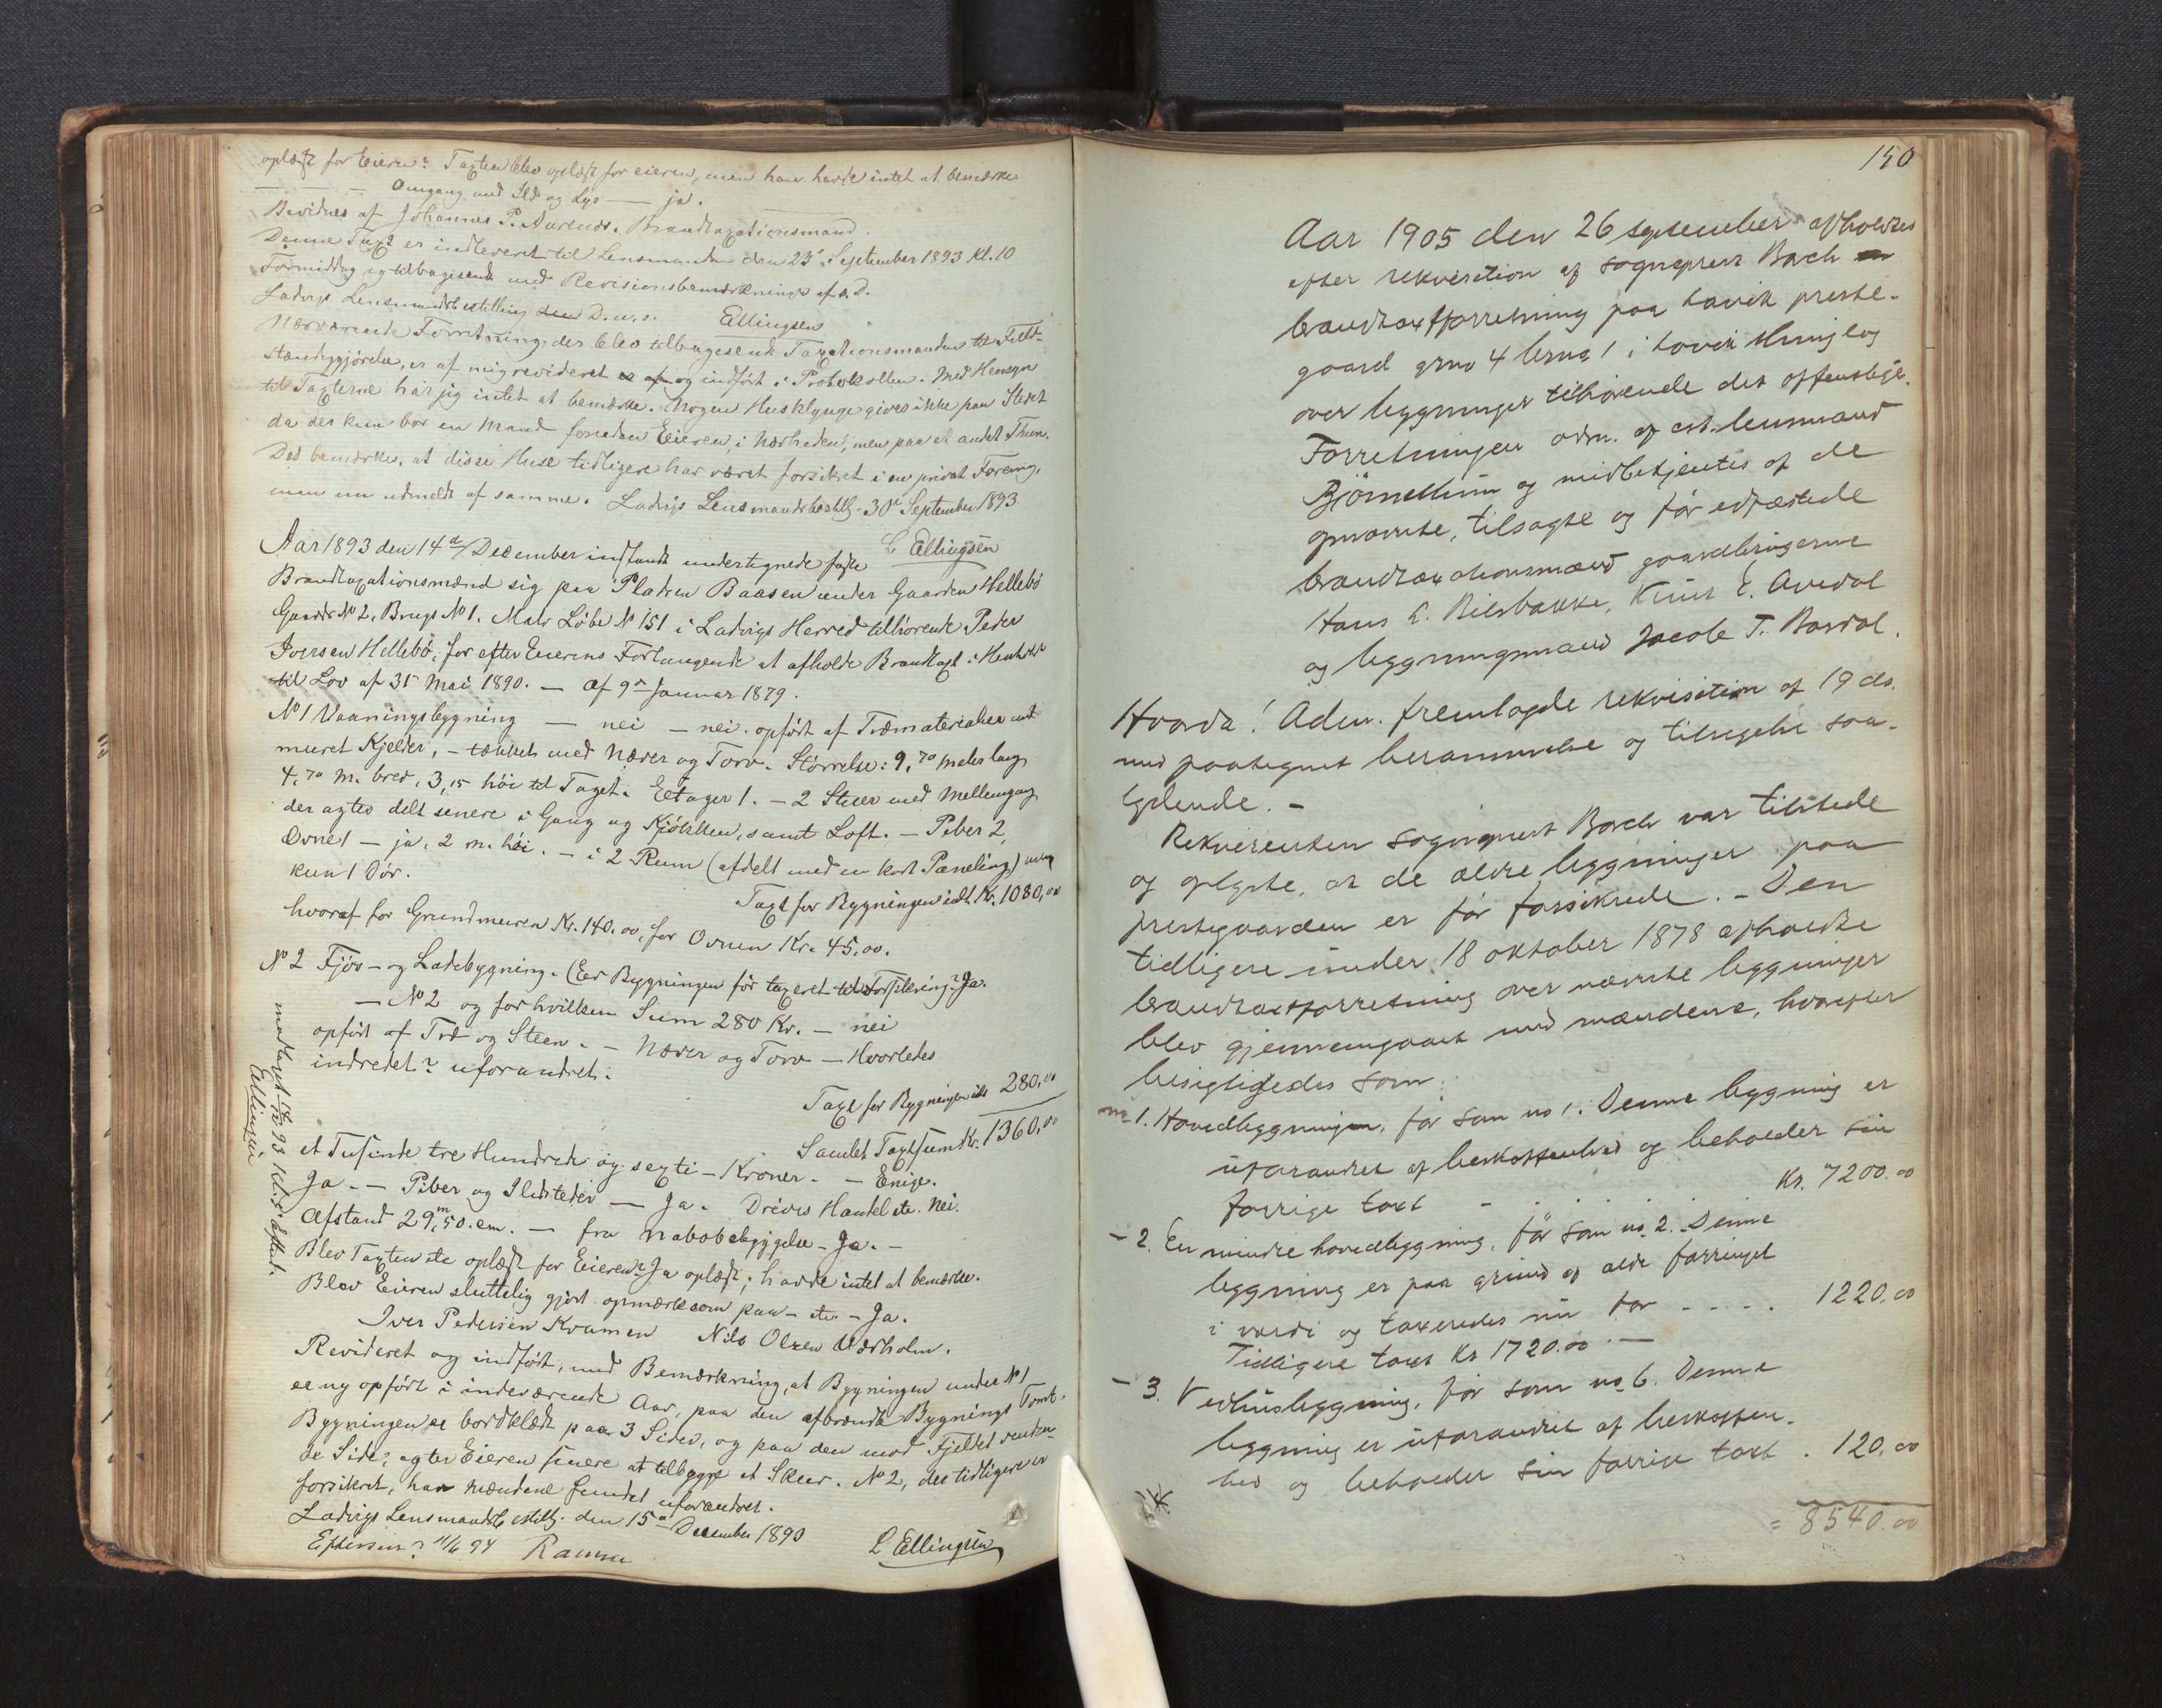 oplæst for Eieren? Taxten blev oplæst for eieren, men han havde intet at bemærke
— — — Omgang med Ild og Lys — ja.
Bevidnes af Johannes P. Aarenes. Brandtaxationsmand.
Denne Taxt er indleveret til Lensmanden den 23de September 1893 Kl. 10
Formiddag og tilbagesendt med Revisionsbemærkninger af s. D.
Ladvigs Lensmandsbestilling den D. u. s. Ellingsen
Nærværende Forretning, der blev tilbagesendt Taxationsmanden til Fuld-
stændiggjørelse, er af mig revideret er af og indført i Protokollen. Med Hensyn
til Taxterne har jeg intet at bemærke. Nogen Husklynge gives ikke paa Stedet
da der kun bor en Mand foruden Eieren, i Nærheden, men paa et andet Thun.
Det bemærkes, at disse Huse tidligere har været forsikret i en privat Forening,
men nu udmeldt af samme. Ladvigs Lensmandsbestillg. 30te September 1893
L Ellingsen
Aar 1893 den 14de December indfandt undertegnede faste
Brandtaxationsmænd sig paa Pladsen Baasen under Gaarden Hellebø
Gaards No 2, Brugs No 1. Matr Løbe No 151 i Ladvigs Herred tilhørende Peder
Iversen Hellebø, for efter Eierens Forlangende at afholde Brandtaxt i Henhold
til Lov af 31 Mai 1890. — af 9de Januar 1879.
No 1 Vaaningsbygning — nei — nei. opført af Træmaterialier
muret Kjelder, — tækket med Næver og Torv. Størrelse: 9,70 meter lang
4,70 m. bred, 3,15 høi til Taget. Eetager 1. — 2 Stuer med Mellemgang
der agtes delt senere i Gang og Kjøkken, samt Loft. — Piber 2,
Ovne 1 — ja. 2 m. høi. — i 2 Rum (afdelt med en kort Paneling) men
kun 1 Dør.
Taxt for Bygningen ialt Kr. 1080,00
hvoraf for Grundmuren Kr. 140.00, for Ovnen Kr. 45.00.
No 2 Fjøs- og Ladebygning. (Eer Bygningen før taxeret til Forsikring? Ja.
— No 2 og for hvilken Sum 280 Kr. — nei
opført af Træ og Steen. — Næver og Torv — Hvorledes
indredet? uforandret.
Taxt for Bygningen ialt 280,00
Samlet Taxtsum Kr. 1360,00
et Tusinde tre Hundrede og sexti — Kroner. — Enige.
Ja. — Piber og Ildsteder — Ja. Drives Handel etc. Nei.
Afstand 29,m50.cm. — fra Nabobebyggelse — Ja. —
Blev Taxten etc oplæst for Eieren? Ja oplæst; havde intet at bemærke.
Blev Eieren sluttelig gjort opmærksom paa — etc. — Ja.
Iver Pedersen Kvamen Nils Olsen Værholm.
Revideret og indført, med Bemærkning, at Bygningen under No 1
er ny opført i indeværende Aar, paa den afbrændte Bygnings Tomt.
Bygningen er bordklædt paa 3 Sider, og paa den mod Fjeldet venden-
de Side, agter Eieren senere at tilbygge et Skur. No 2, der tidligere er
forsikret, har Mændene fundet uforandret.
Ladvigs Lensmandsbestillg. den 15de December 1893
L Ellingsen
Eftersin? 11/6 94 Ramm
modtaget 15/12 93 Kl. 5 efterm.
Ellingsen
150
Aar 1905 den 26 september afholdtes
efter rekvisition af sogneprest Bach en
brandtaxtforretning paa Lavik preste-
gaard grno 4 brno 1 i Lavik thinglag
over bygninger tilhørende det offentlige.
Forretningen adm. af cst. lensmand
Bjørnethun og medbetjentes af de
opnævnte, tilsagte og før edfæstede
brandtaxationsmænd gaardbrugerne
Hans E. Bilsbakke, Knut E. Avedal
og bygningsmand Jacob T. Bardal.
Hvorda! Adm. fremlagde rekvisition af 19 ds.
med paategnet berammelse og tilsigelse saa-
lydende. —
Rekvirenten sogneprest Bach var tilstede
og oplyste, at de ældre bygninger paa
prestegaarden er før forsikrede. — Den
tidligere under 18 oktober 1878 afholdte
brandtaxtforretning over nævnte bygninger
blev gjennemgaaet med mændene, hvorefter
besigtigedes som:
no 1. Hovedbygningen, før som no 1. Denne bygning er
uforandret af beskaffenhed og beholder sin
forrige taxt - . . . . . Kr. 7200.00
— 2. En mindre hovedbygning, før som no 2. Denne
bygning er paa grund af ælde forringet
i værdi og taxeredes nu for - - - - . 1220.00
Tidligere taxt Kr 1720.00 —
— 3. Vedhusbygning, før som no 6. Denne
bygning er uforandret af beskaffen-
hed og beholder sin forrige taxt . 120.00
= 8540.00